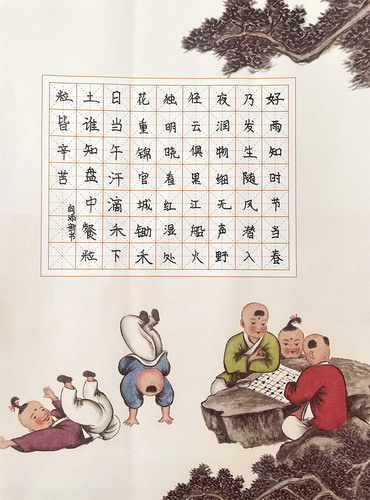 好雨知时节当春
乃发生随风潜入
夜润物细无声野
径云俱黑江船火
独明晓看红湿处
花重锦官城锄禾
日当午汗滴禾下
土谁知盘中餐粒
粒皆辛苦
书